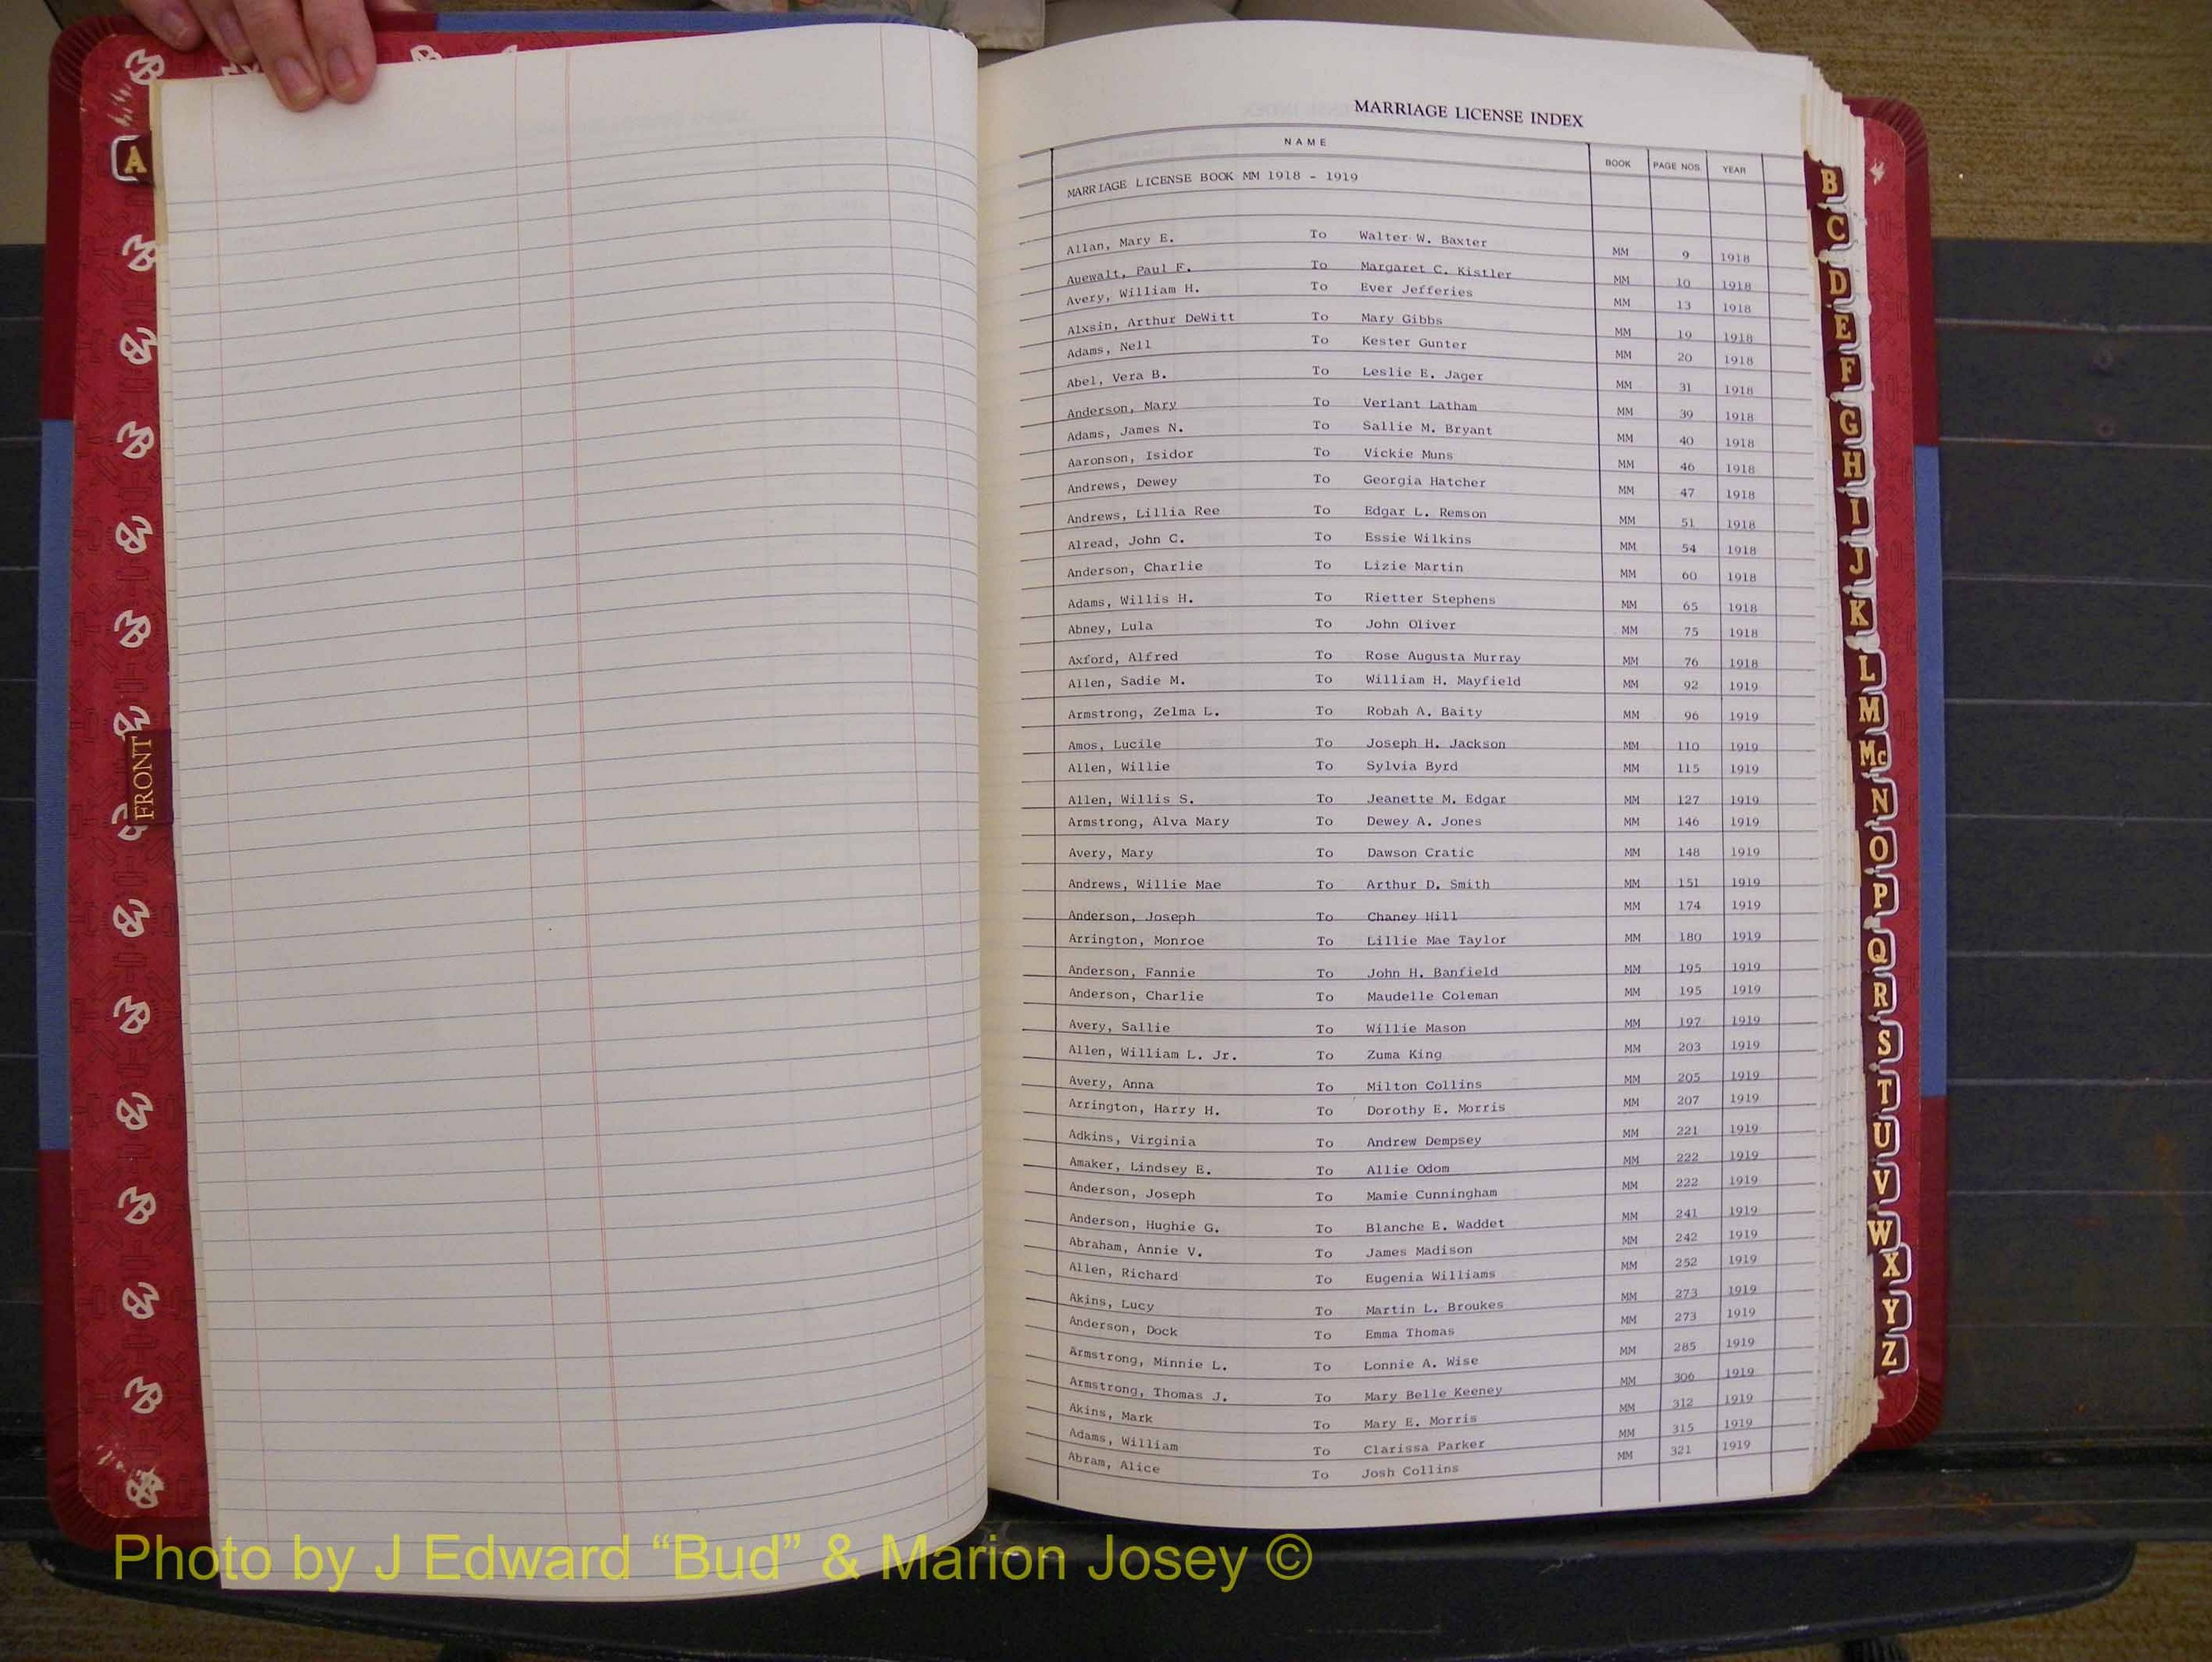 MARRIAGE LICENSE INDEX
NAME BOOK PAGE NOS. YEAR
MARRIAGE LICENSE BOOK MM 1918 - 1919
Allan, Mary E. To Walter W. Baxter MM 9 1918
Auewalt, Paul F. To Margaret C. Kistler MM 10 1918
Avery, William H. To Ever Jefferies MM 13 1918
Alxsin, Arthur DeWitt To Mary Gibbs MM 19 1918
Adams, Nell To Kester Gunter MM 20 1918
Abel, Vera B. To Leslie E. Jager MM 31 1918
Anderson, Mary To Verlant Latham MM 39 1918
Adams, James N. To Sallie M. Bryant MM 40 1918
Aaronson, Isidor To Vickie Muns MM 46 1918
Andrews, Dewey To Georgia Hatcher MM 47 1918
Andrews, Lillia Ree To Edgar L. Remson MM 51 1918
Alread, John C. To Essie Wilkins MM 54 1918
Anderson, Charlie To Lizie Martin MM 60 1918
Adams, Willis H. To Rietter Stephens MM 65 1918
Abney, Lula To John Oliver MM 75 1918
Axford, Alfred To Rose Augusta Murray MM 76 1918
Allen, Sadie M. To William H. Mayfield MM 92 1919
Armstrong, Zelma L. To Robah A. Baity MM 96 1919
Amos, Lucile To Joseph H. Jackson MM 110 1919
Allen, Willie To Sylvia Byrd MM 115 1919
Allen, Willis S. To Jeanette M. Edgar MM 127 1919
Armstrong, Alva Mary To Dewey A. Jones MM 146 1919
Avery, Mary To Dawson Cratic MM 148 1919
Andrews, Willie Mae To Arthur D. Smith MM 151 1919
Anderson, Joseph To Chaney Hill MM 174 1919
Arrington, Monroe To Lillie Mae Taylor MM 180 1919
Anderson, Fannie To John H. Banfield MM 195 1919
Anderson, Charlie To Maudelle Coleman MM 195 1919
Avery, Sallie To Willie Mason MM 197 1919
Allen, William L. Jr. To Zuma King MM 203 1919
Avery, Anna To Milton Collins MM 205 1919
Arrington, Harry H. To Dorothy E. Morris MM 207 1919
Adkins, Virginia To Andrew Dempsey MM 221 1919
Amaker, Lindsey E. To Allie Odom MM 222 1919
Anderson, Joseph To Mamie Cunningham MM 222 1919
Anderson, Hughie G. To Blanche E. Waddet MM 241 1919
Abraham, Annie V. To James Madison MM 242 1919
Allen, Richard To Eugenia Williams MM 252 1919
Akins, Lucy To Martin L. Broukes MM 273 1919
Anderson, Dock To Emma Thomas MM 273 1919
Armstrong, Minnie L. To Lonnie A. Wise MM 285 1919
Armstrong, Thomas J. To Mary Belle Keeney MM 306 1919
Akins, Mark To Mary E. Morris MM 312 1919
Adams, William To Clarissa Parker MM 315 1919
Abram, Alice To Josh Collins MM 321 1919
A
FRONT
B
C
D
E
F
G
H
I
J
K
L
M
Mc
N
O
P
Q
R
S
T
U
V
W
X
Y
Z
Photo by J Edward “Bud” & Marion Josey ©